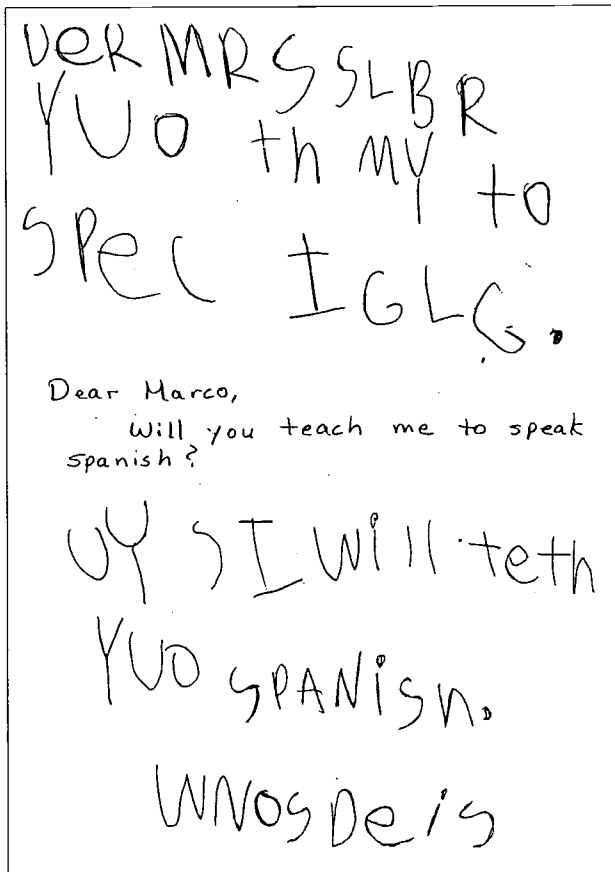 DeR MRS SLBR
YUO th MY to
SPeC IGLG.
Dear Marco,
Will you teach me to speak
spanish?
UY S I Will teth
YUO SPANiSh.
WNOSDeiS